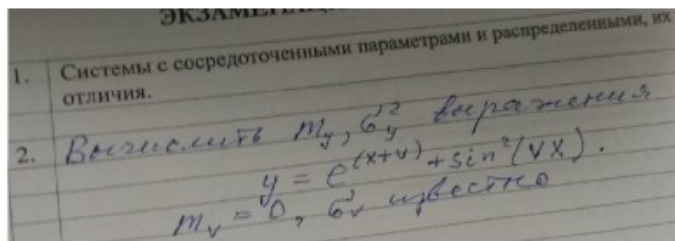 ЭКЗАМЕНАЦ
1. Системы с сосредоточенными параметрами и распределенными, их
отличия.
2. Вычислить m_y, σ_y² выражения
y = e^(x+v) + sin²(vx).
m_v = 0, σ_v² известно